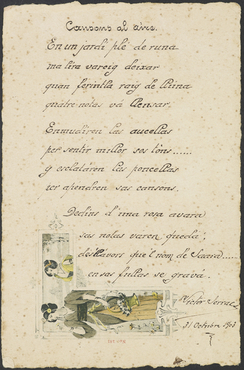 Cansons al aire.
En un jardí plé de runa
ma lira vareig deixar
quan ferintla raig de lluna
quatre notas vá llensar.
Enmudiren las aucellas
per sentir millor sos sons.....
y esclataren las poncellas
per apendrer sas cansons.
Dedins d'una rosa avara
sas notas varen quedá,
desllavors que'l nom de ......
en sas fullas se gravá.
Victor
31 Octubre 1903